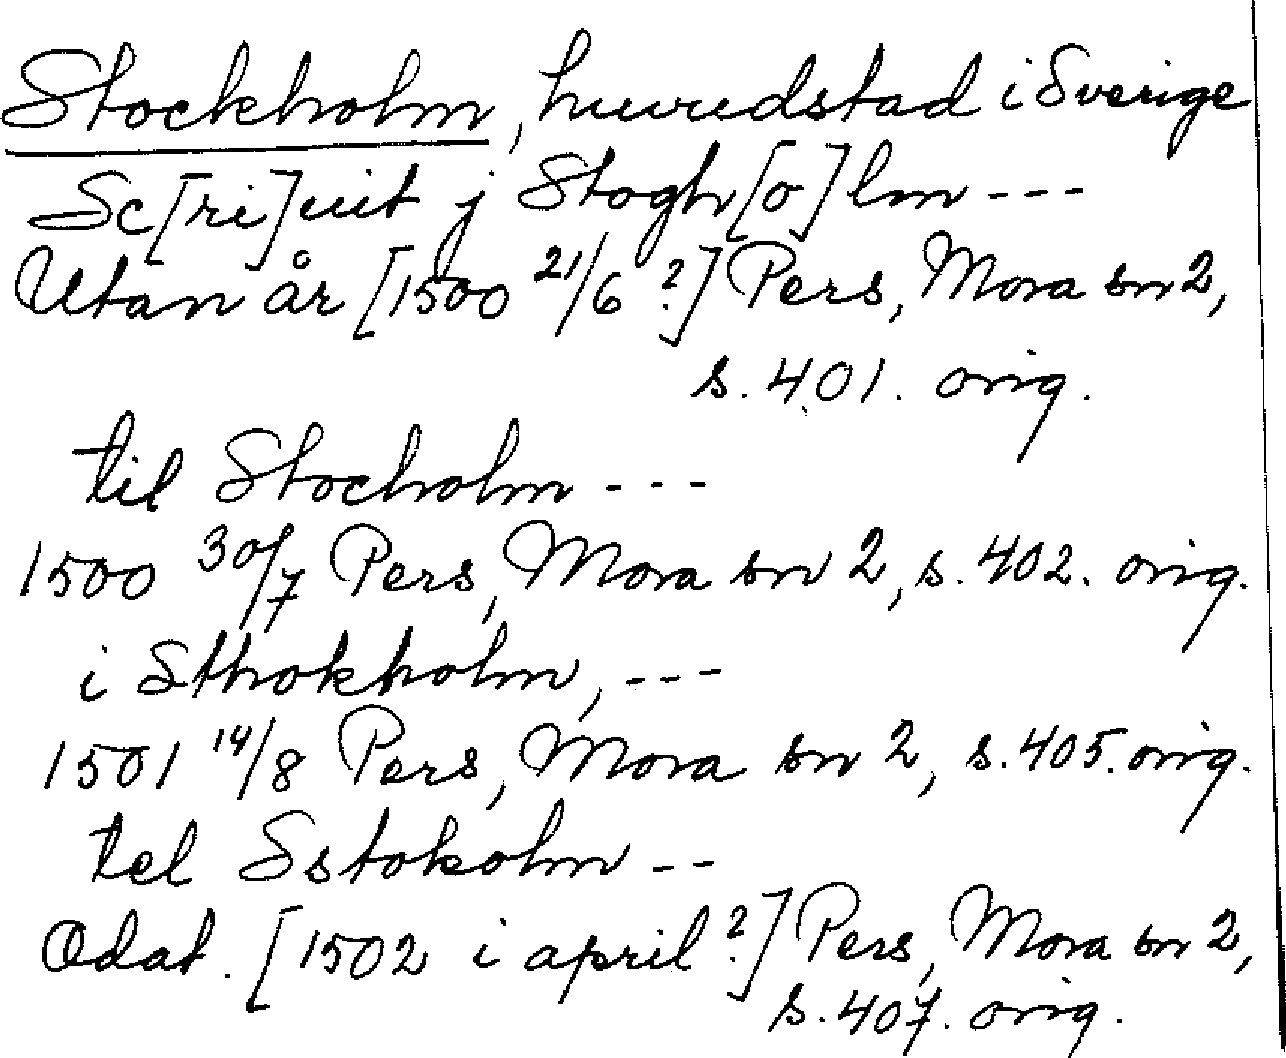 Stockholm, huvudstad i Sverige
Sc[ri]uit j Stogh[o]lm ---
Utan år [1500 21/6 ?] Pers, Mora sn 2,
s. 401. orig.
til Stocholm ---
1500 30/7 Pers, Mora sn 2, s. 402. orig.
i Sthokholm, ---
1501 14/8 Pers, Mora sn 2, s. 405. orig.
tel Sstokolm --
Odat. [1502 i april ?] Pers, Mora sn 2,
s. 407. orig.